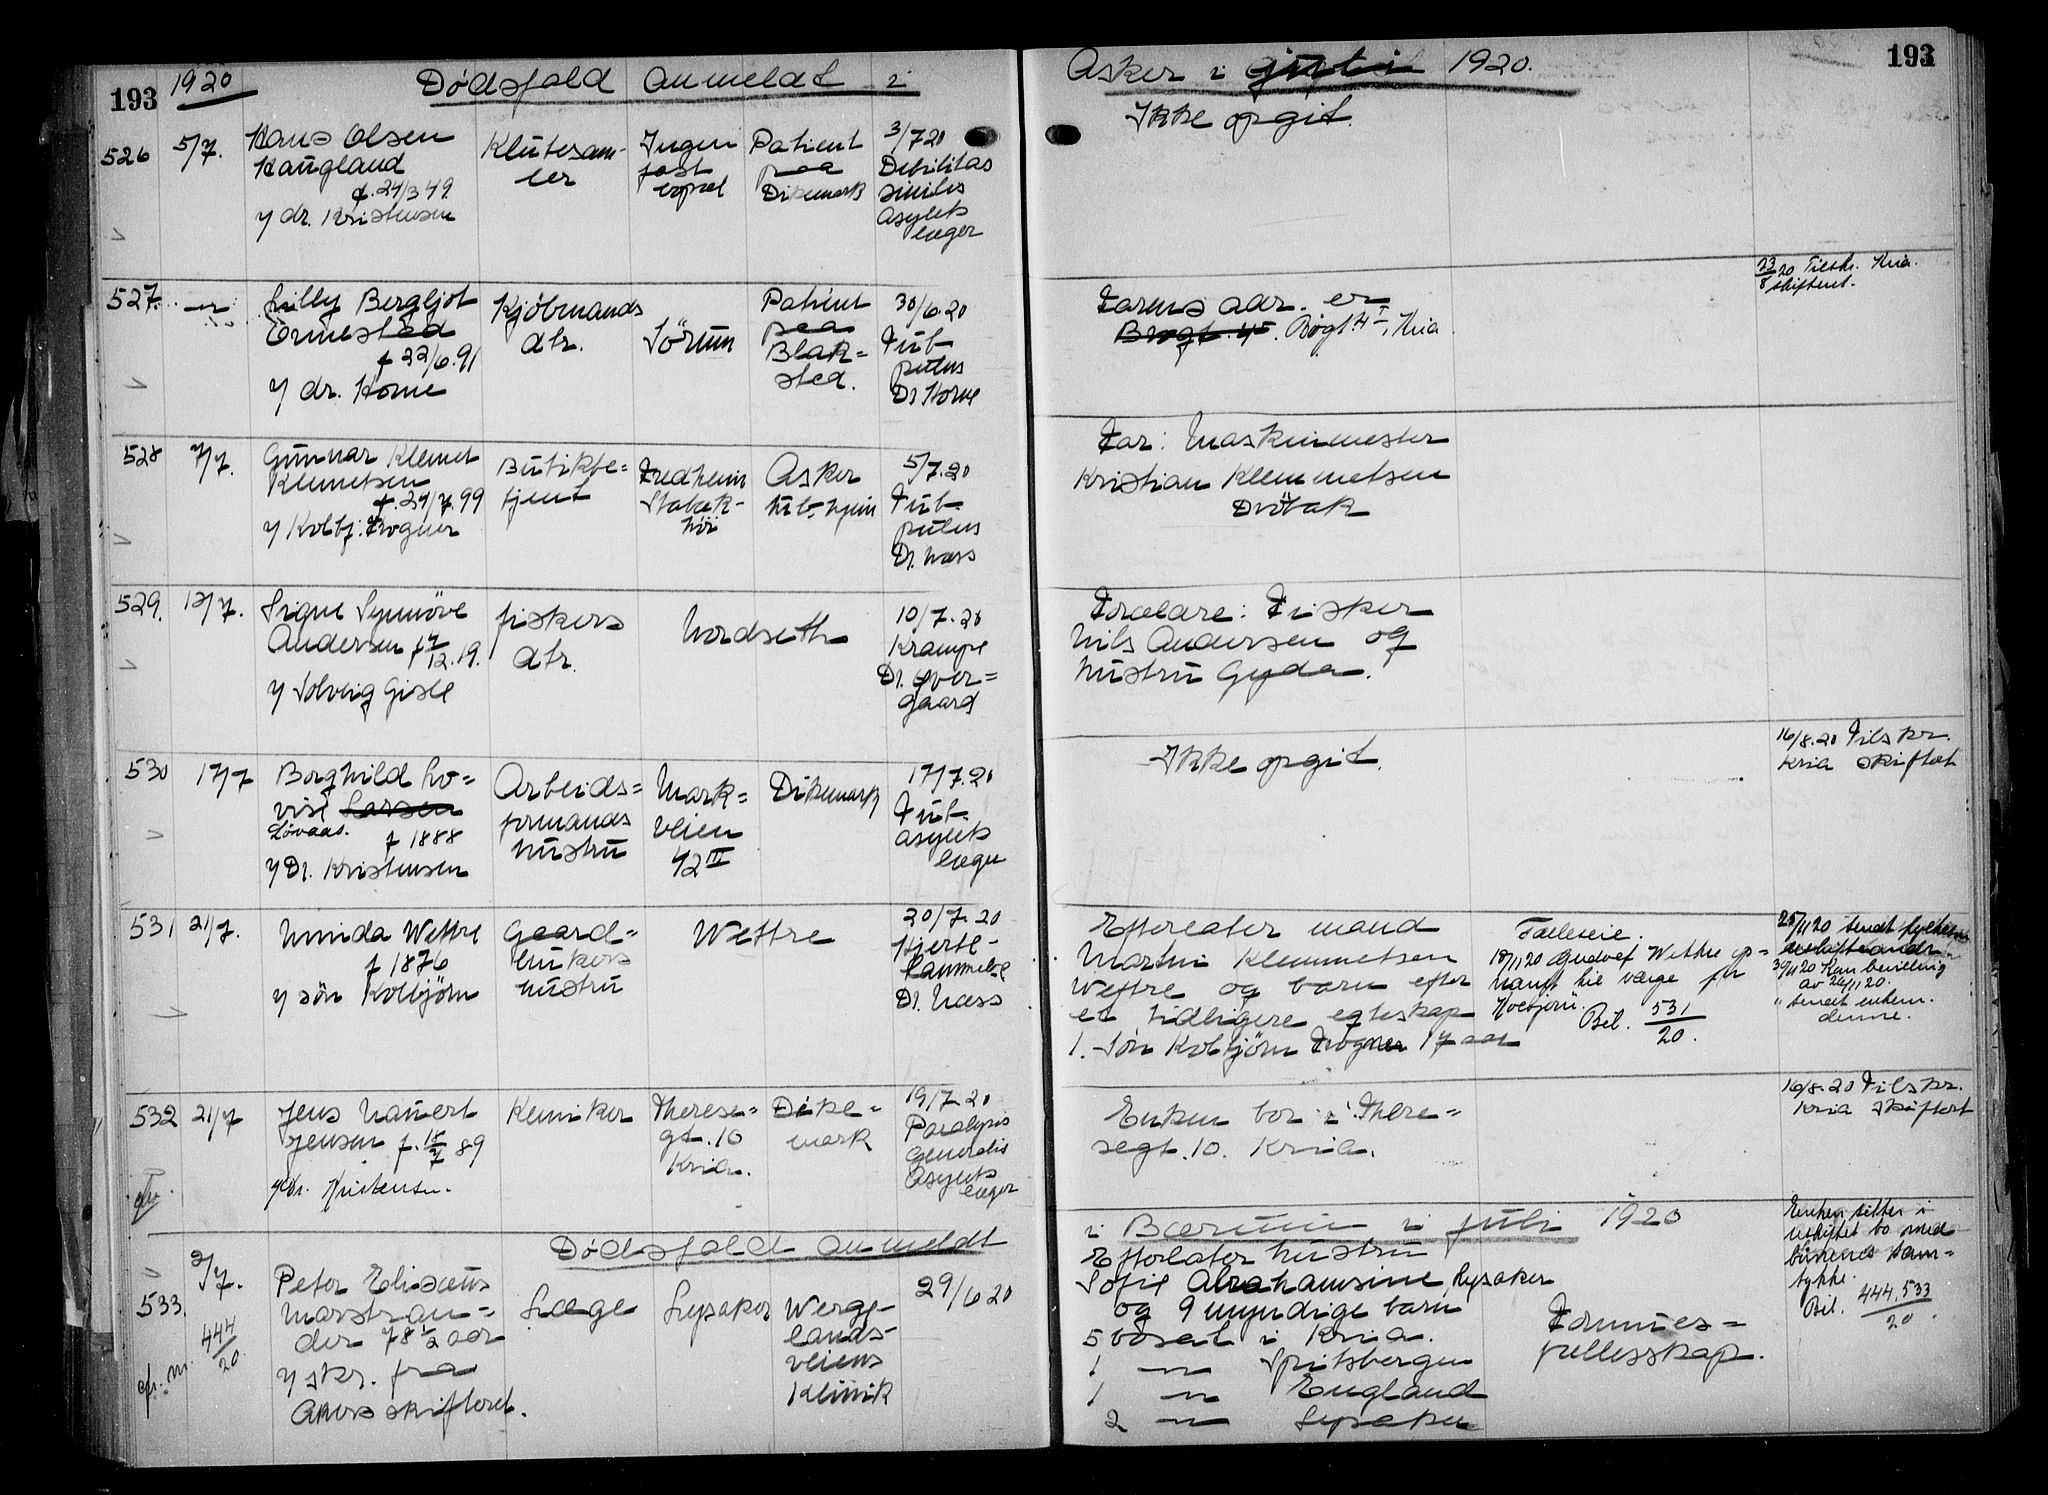 193 1920 Dødsfald anmeldt i
Asker i 1920. 193
526 5/7. Hans Olsen
Haugland
f. 24/3 49
v/ dr. Kristensen
Klutesam-
ler
Ingen
fast
bopæl
Patient
paa
Dikemark
3/7 20
Debilitas
senilis
asylets
læger
Ikke opgit.
527. —"— Lilly Bergljot
Ormestad
f 22/6. 91
v/ dr. Horne
Kjöbmands
dtr.
Sörum
Patient
paa
Blak=
sted.
30/6. 20
Tub.
pulm
Dr Horne
Farens adr. er
Bogt. 4I, Kria.
23/8 20 Tilskr. Kria.
skifteret.
528 7/7. Gunnar Klemet
Klemetsen
f. 24/7. 99
v/ Kolbj: Trogner
Butikbe=
tjent
Fredheim
Stabæk-
höi
Asker
tub. hjem
5/7. 20
Tub.
pulm
Dr. Næss
Far: Maskinmester
Kristian Klemmetsen
Dröbak
529. 12/7. Signe Synnöve
Andersen f 7/12. 19.
v/ Solveig Gisle
fiskers
dtr.
Nordseth
10/7. 20
Krampe
Dr. Øver=
gaard
Forældre: Fisker
Nils Andersen og
hustru Gyda.
530 17/7 Borghild Lo=
vise Larsen
Lövaas. f 1888
v/ Dr. Kristensen
Arbeids=
formands
hustru
Mark=
veien
42 III
Dikemark
17/7. 20
Tub.
asylets
læger
Ikke opgit.
16/8. 20 Tilskr.
Kria skifteret
531 21/7. Minda Wettre
f 1876
v/ sön Kolbjörn
Gaard=
brukers
hustru
Wettre
20/7. 20
Hjerte-
lammelse
Dr. Næss
Efterlater mand
Martin Klemmetsen
Wettre og barn efter
et tidligere egteskap
1. Sön Kolbjörn Trogner 17 aar
Fælleseie.
18/11 20 Gudolf Wettre op=
nævnt til værge for
Kolbjörn.
Bil. 531/20.
25/11 20 sendt
30/11 20 Kom bevilling
av 26/11 20.
" sendt enkem.
denne.
532 21/7 Jens Nauert
Jensen f. 14/7 89
v/ dr. Kristensen.
Kemiker
Therese=
gt. 10
Kria.
Dike=
mark
19/7. 20
Paralysis
generalis
Asylets
læger
Enken bor i There=
segt. 10. Kria.
16/8. 20 Tilskr.
Kria skifteret
Dødsfald anmeldt
i Bærum i juli 1920
533. 2/7. Peter Elisæus
Marstran=
der 78 1/2 aar
v/ skr. fra
Akers skifteret.
444/20.
Læge
Lysaker
Werge-
lands-
veiens
Klinik
29/6 20
Efterlater hustru
Sofie Abrahamsine, Lysaker
og 9 myndige barn
5 bosat i Kria.
1 —"— Spitsbergen
1 —"— England
2 —"— Lysaker
Formues=
fællesskap.
Enken sitter i
uskiftet bo med
barnenes sam=
tykke.
Bil. 444, 533/20.